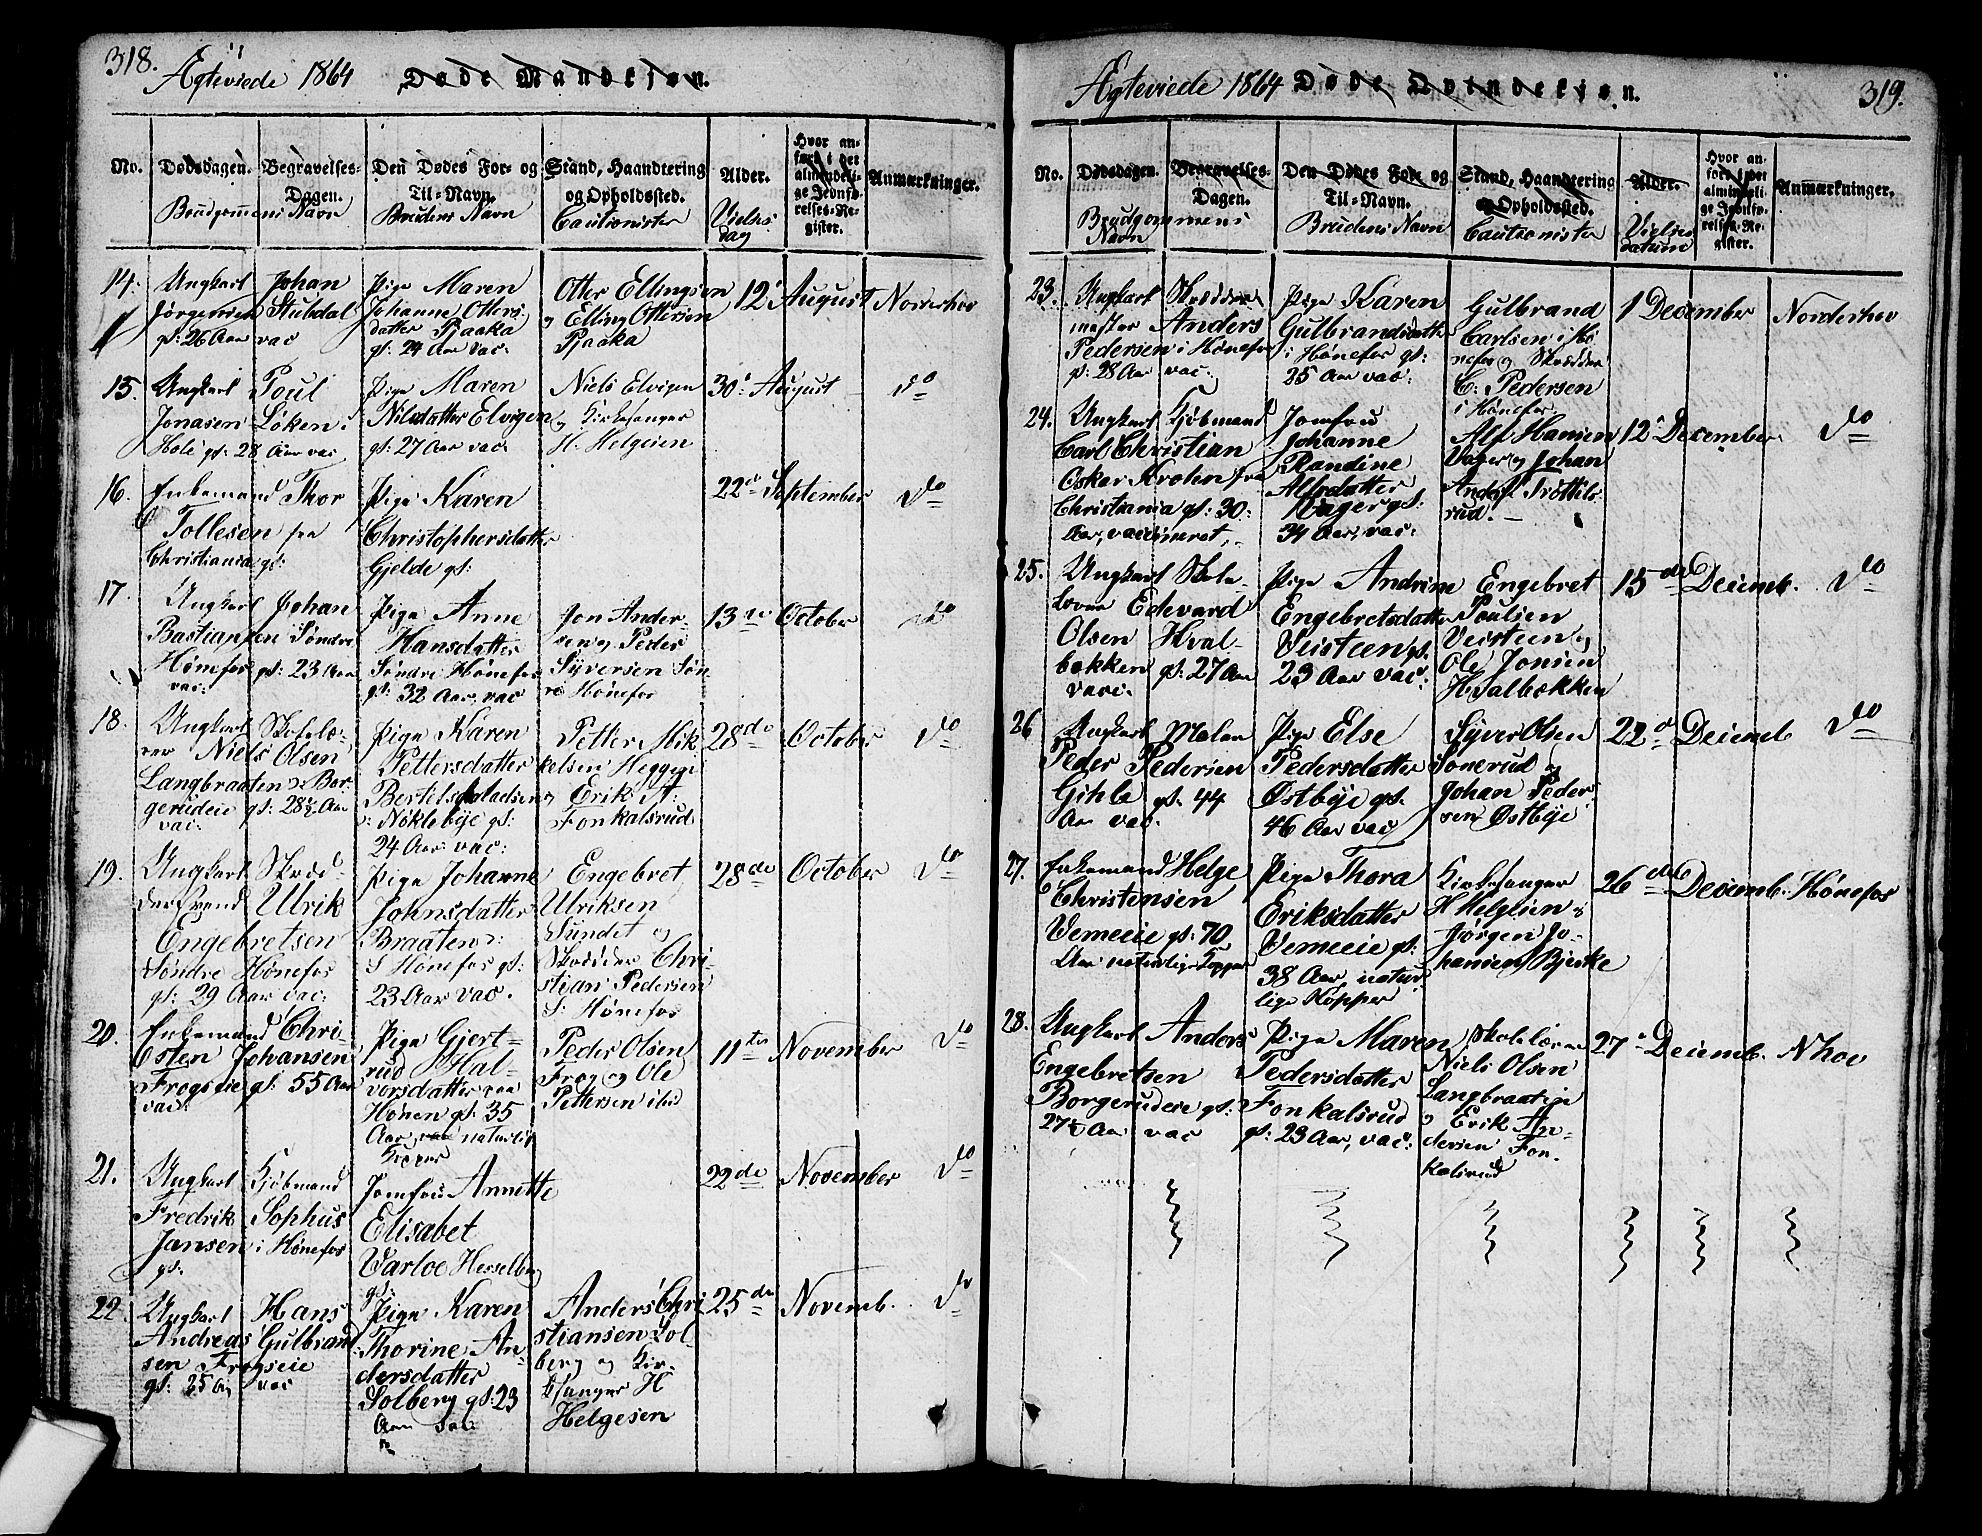 318.
Ægteviede 1864 Døde Mandekjøn.
No. Dødsdagen. Begravelses-Dagen. Den Dødes For- og Til-Navn. Stand, Haandtering og Opholdssted. Alder. Hvor anført i det almindelige Jevnførelses-Register. Anmærkninger.
Brudgommens Navn Brudens Navn Cautionister Vielses dag
14. Ungkarl Johan
Jørgensen Stubdal
gl: 26 Aar vac
Pige Maren
Johanne Otters-
datter Pjaaka
gl: 24 Aar vac:
Otter Ellingsen
og Elling Ottersen
Pjaaka
12 August Norderhov
15. Ungkarl Poul
Jonasen Løken i
Hole gl: 28 Aar vac
Pige Maren
Nilsdatter Elvigen
gl: 27 Aar vac:
Niels Elvigen
og Kirkesanger
H: Helgesen
30 August do
16. Enkemand Thor
Tollesen fra
Christiania gl:
Pige Karen
Christophersdatter
Gjelde gl:
22de September do
17. Ungkarl Johan
Bastiansen Søndre
Hønefos gl: 23 Aar
vac:
Pige Anne
Hansdatter
Søndre Hønefos
gl: 32 Aar, vac
Jon Ander-
sen og Peder
Syversen Søn-
re Hønefos
13de October do
18. Ungkarl Skolelæ-
rer Niels Olsen
Langbraaten Bor-
gerudeie gl: 28½ Aar
vac:
Pige Karen
Pettersdatter
Bertelspladsen
Nøklebye gl:
24 Aar: vac:
Petter Mik
kelsen Heggen
og Erik A:
Fonkalsrud
28de October do
19. Ungkarl Skræd-
dersvend Ulrik
Engebretsen
Søndre Hønefos
gl: 29 Aar vac:
Pige Johanne
Johnsdatter
Braaten
S Hønefos gl:
23 Aar vac.
Engebret
Ulriksen
Sundet og
Skrædder Chri-
stian Pedersen
S: Hønefos
28de October do
20. Enkemand Chri-
sten Johansen
Frogseie gl: 55 Aar
vac:
Pige Gjert-
rud Hal-
vorsdatter
Hønen gl: 35
Aar, naturlig
Kopper
Peder Olsen
Frog og Ole
Pettersen ibd
11te November do
21. Ungkarl Kjøbmand
Fredrik Sophus
Jansen i Hønefos
gl:
Jomfru Annette
Elisabet
Varloe Hesselberg
gl:
22de November do
22. Ungkarl Hans
Andreas Gulbrand
sen Frogseie
gl: 25 Aar vac
Pige Karen
Thorine An-
dersdatter
Solberg gl: 23
Aar vac
Anders Chri
stiansen Sol
berg og Kir-
kesanger H
Helgesen
25de Novemb. do
319.
Ægteviede 1864 Døde Qvindekjøn.
No. Dødsdagen. Begravelses-Dagen. Den Dødes For- og Til-Navn. Stand, Haandtering og Opholdssted. Alder. Hvor anført i det almindelige Jevnførelses-Register. Anmærkninger.
Brudgommens Navn Brudens Navn Cautionister Vielses datum
23. Ungkarl Skrædder
mester Anders
Pedersen i Hønefos
gl: 28 Aar vac:
Pige Karen
Gulbrandsdatter
i Hønefos gl:
25 Aar vac:
Gulbrand
Carlsen i Hø
nefos og Skrædder
C: Pedersen
i Hønefos
1 December Norderhov
24. Ungkarl Kjøbmand
Carl Christian
Oskar Krohn fra
Christiania gl: 30
Aar, vaccineret,
Jomfru
Johanne
Randine
Alfsdatter
Vager gl:
34 Aar, vac:
Alf Hansen
Vager og Johan
Anders Trøttels
rud.
12 December do
25. Ungkarl Skole-
lærer Edevard
Olsen Hval-
bækken gl: 27 Aar
vacc.
Pige Andrine
Engebretsdatter
Veisteen gl:
23 Aar vac:
Engebret
Poulsen
Veisteen og
Ole Jonsen
Hvalbækken
15de Decemb. do
26 Ungkarl Maler
Peder Pedersen
Gihle gl. 44
Aar vac.
Pige Else
Pedersdatter
Østbye gl.
46 Aar vac
Syver Olsen
Sonerud og
Johan Peder
sen Østbye
22d Decemb do
27. Enkemand Helge
Christensen
Vemeeie gl: 70
Aar naturlige Kopper
Pige Thora
Eriksdatter
Vemeeie gl:
38 Aar, natur
lige Kopper
Kirkesanger
H Helgesen &
Jørgen Jo-
hansen Bjerke
26de Decemb. Hønefos
28. Ungkarl Anders
Engebretsen
Borgerudeie gl:
27½ Aar vac
Pige Maren
Pedersdatter
Fonkalsrud
gl: 23 Aar, vac:
Skolelærer
Niels Olsen
Langbraaten
og Erik An-
dersen Fon-
kalsrud
27 Decemb. Nhov